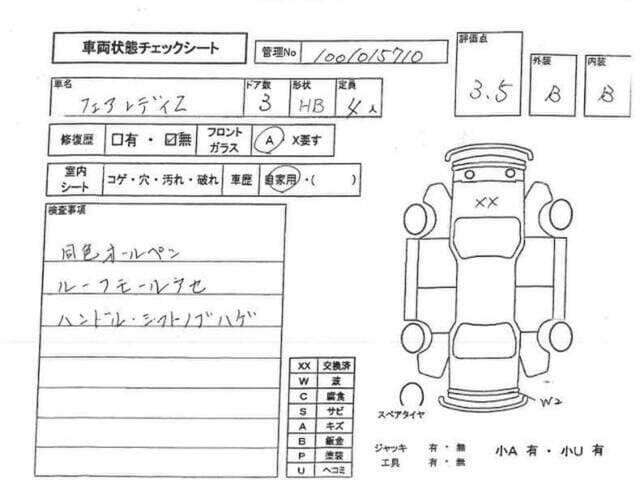 車両状態チェックシート
管理No 1001015710
評価点 3.5
外装 B
内装 B
車名 フェアレディZ
ドア数 3
形状 HB
定員 4人
修復歴 □有・☑無
フロントガラス A X要す
室内シート コゲ・穴・汚れ・破れ
車歴 自家用・( )
検査事項
同色オールペン
ルーフモールアセ
ハンドル・シフトノブハゲ
XX
W2
XX 交換済
W 波
C 腐食
S サビ
A キズ
B 鈑金
P 塗装
U ヘコミ
スペアタイヤ
ジャッキ 有・無
工具 有・無
小A 有・小U 有